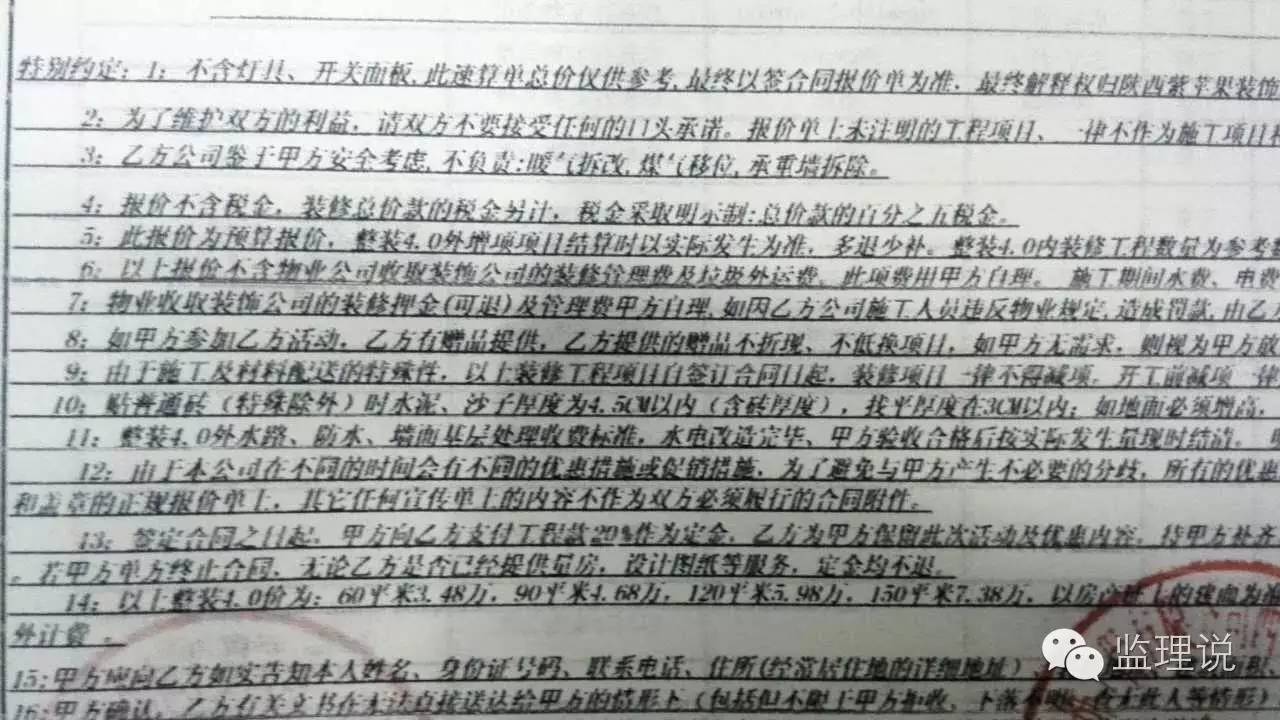 特别约定：1：不含灯具、开关面板,此速算单总价仅供参考,最终以签合同报价单为准，最终解释权归陕西紫苹果装饰
2：为了维护双方的利益，请双方不要接受任何的口头承诺。报价单上未注明的工程项目、一律不作为施工项目
3：乙方公司鉴于甲方安全考虑,不负责:暖气拆改,煤气移位,承重墙拆除。
4：报价不含税金，装修总价款的税金另计，税金采取明示制:总价款的百分之五税金。
5：此报价为预算报价，整装4.0外增项项目结算时以实际发生为准，多退少补。整装4.0内装修工程数量为参考
6：以上报价不含物业公司收取装饰公司的装修管理费及垃圾外运费。此项费用甲方自理。 施工期间水费、电费
7：物业收取装饰公司的装修押金(可退)及管理费甲方自理,如因乙方公司施工人员违反物业规定,造成罚款,由乙方
8：如甲方参加乙方活动，乙方有赠品提供，乙方提供的赠品不折现、不低换项目，如甲方无需求，则视为甲方放
9：由于施工及材料配送的特殊性，以上装修工程项目自签订合同日起，装修项目一律不得减项。开工前减项一律
10：贴普通砖（特殊除外）时水泥、沙子厚度为4.5CM以内（含砖厚度），找平厚度在3CM以内；如地面必须增高，
11：整装4.0外水路、防水、墙面基层处理收费标准，水电改造完毕、甲方验收合格后按实际发生量现时结清。
12：由于本公司在不同的时间会有不同的优惠措施或促销措施，为了避免与甲方产生不必要的分歧，所有的优惠
和盖章的正规报价单上，其它任何宣传单上的内容不作为双方必须履行的合同附件。
13：签定合同之日起，甲方向乙方支付工程款20%作为定金，乙方为甲方保留此次活动及优惠内容。待甲方补齐
。若甲方单方终止合同，无论乙方是否已经提供量房，设计图纸等服务，定金均不退。
14：以上整装4.0价为：60平米3.48万，90平米4.68万，120平米5.98万，150平米7.38万，以房产证上的建面为准
外计费 。
15：甲方应向乙方如实告知本人姓名、身份证号码、联系电话、住所(经常居住地的详细地址)
16：甲方确认，乙方有关文书在无法直接送达给甲方的情形下（包括但不限于甲方拒收、下落不明、查无此人等情形）
监理说